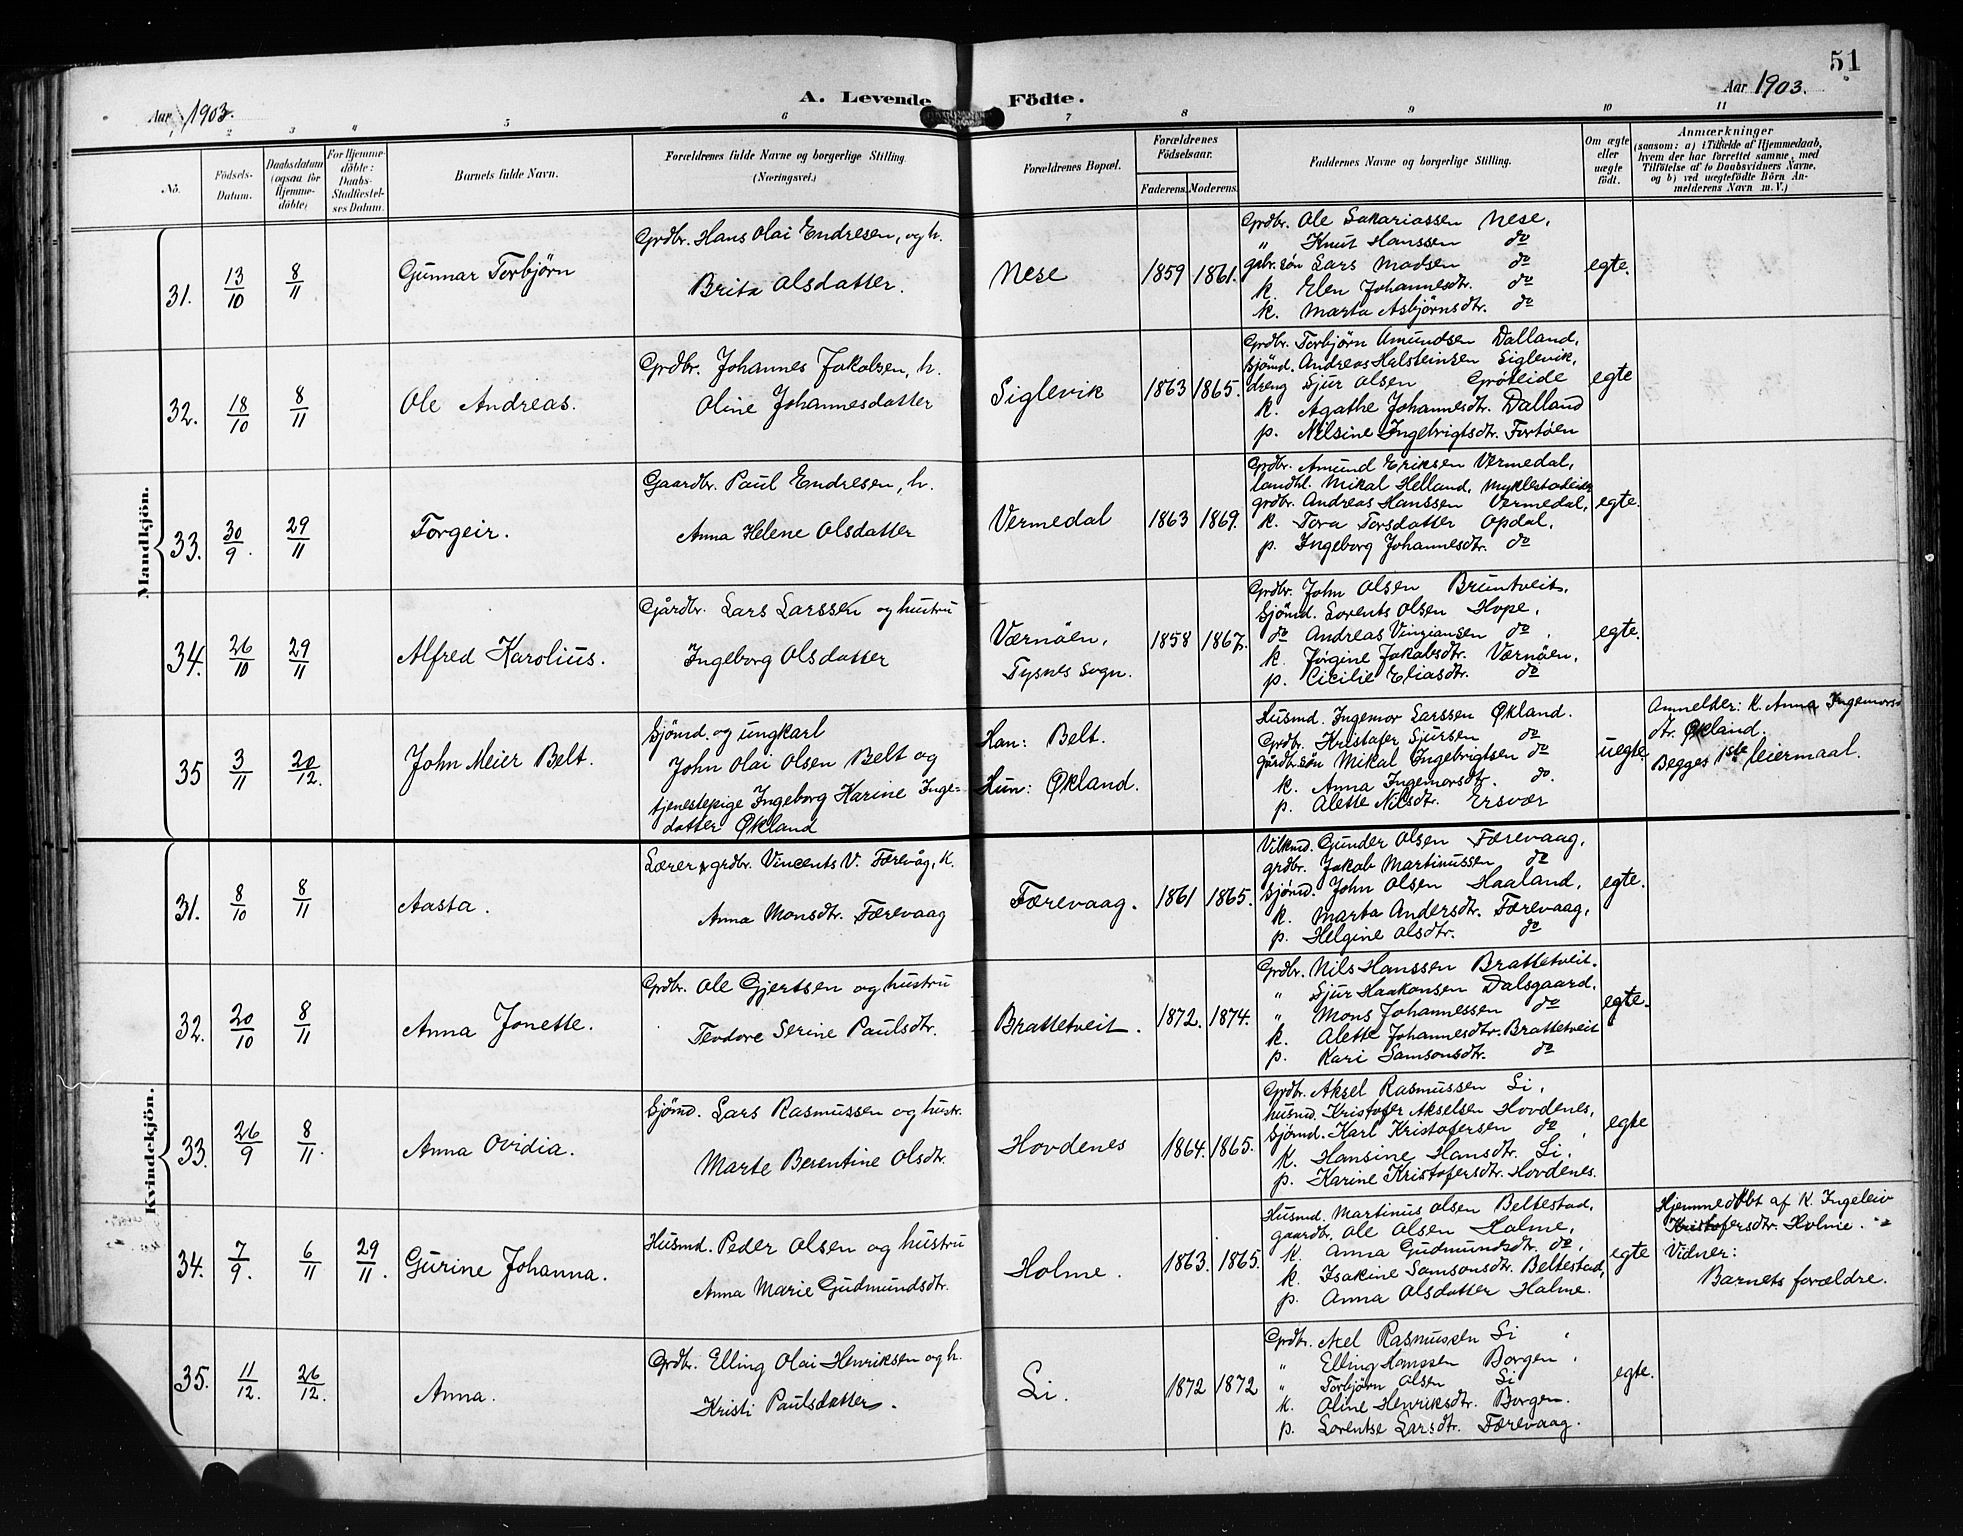 51
Aar 1903. A. Levende Födte. Aar 1903.
1 2 3 4 5 6 7 8 9 10 11
No. Födsels-Datum. Daabsdatum (ogsaa for Hjemmedöbte) For Hjemmedöbte: Daabs-Stadfæstelses Datum. Barnets fulde Navn. Forældrenes fulde Navne og borgerlige Stilling. (Næringsvei.) Forældrenes Bopæl. Forældrenes Födselsaar. Faderens. Moderens. Faddernes Navne og borgerlige Stilling. Om ægte eller uægte födt. Anmærkninger (saasom: a) i Tilfælde af Hjemmedaab, hvem der har forrettet samme, med Tilföielse af to Daabsvidners Navne, og b) ved uægtefödte Börn Anmelderens Navn m. V.)
Mandkjön.
31. 13/10 8/11 Gunnar Torbjörn
Grdbr. Hans Olai Endresen, og h.
Brita Olsdatter.
Nese 1859 1861.
Grdbr. Ole Sakariassen Nese,
" Knut Hanssen do
gbr.søn Lars Madsen do
k. Elen Johannesdtr. do
k. Marta Asbjørnsdtr. do
egte.
32. 18/10 8/11 Ole Andreas.
Grdbr. Johannes Jakobsen, h.
Oline Johannesdatter
Siglevik 1863 1865.
Grdbr. Torbjörn Amundsen Dalland,
sjömd. Andreas Halsteinsen Siglevik,
dreng Sjur Olsen Gröteide
k. Agathe Johannesdtr. Dalland
p. Nilsine Ingebrigtsdtr. Fortöen
egte
33. 30/9. 29/11 Torgeir.
Gaardbr. Paul Endresen, h.
Anna Helene Olsdatter
Vermedal 1863 1869.
Grdbr. Amund Eriksen Vermedal,
landhl. Mikal Helland, Myklestadeide
grdbr. Andreas Hanssen Vermedal,
k. Tora Torsdatter Opdal,
p. Ingeborg Johannesdtr. do
egte.
34. 26/10 29/11 Alfred Karolius.
Gårdbr. Lars Larssen og hustru
Ingeborg Olsdatter
Værnöen, Tysnes sogn. 1858 1867.
Grdbr. John Olsen Bruntveit,
Sjömd. Lorents Olsen Hope,
do Andreas Vinziansen do,
k. Jörgine Jakobsdtr. Værnöen,
p. Cicilie Eliasdtr. do
egte.
35 3/11 20/12. John Meier Belt.
Sjömd. og ungkarl
John Olai Olsen Belt og
tjenestepige Ingeborg Karine Inge-
datter Økland
Han: Belt.
Hun: Økland.
Husmd. Ingemor Larssen Økland.
Grdbr. Kristofer Sjursen do
gårdbr.søn Mikal Ingebrigtsen do
k. Anna Ingemorsdtr. do.
p. Alette Nilsdtr. Ersvær
uegte.
Anmelder: K. Anna Ingemors-
dtr. Økland.
Begges 1ste leiermaal.
Kvindekjön.
31. 8/10 8/11 Aasta.
Lærer & grdbr. Vincents V. Færevåg, K.
Anna Monsdtr. Færevaag
Færevaag. 1861 1865.
Vilkmd. Gunder Olsen Færevaag,
grdbr. Jakob Martinussen do
sjömd. John Olsen Haaland,
k. Marta Andersdtr. Færevaag,
p. Helgine Olsdtr. do
egte.
32. 20/10 8/11 Anna Jonette.
Grdbr. Ole Gjertsen og hustru
Teodore Serine Paulsdtr.
Brattetveit. 1872. 1874.
Grdbr. Nils Hanssen Brattetveit.
" Sjur Haakonsen Dalsgaard.
" Mons Johannessen do
k. Alette Johannesdtr. Brattetveit
p. Kari Samsonsdtr. do
egte.
33. 26/9 8/11. Anna Ovidia.
Sjömd. Lars Rasmussen og hustr.
Marte Berentine Olsdtr.
Hovdenes 1864. 1865.
Grdbr. Aksel Rasmussen Li,
husmd. Kristofer Akselsen Hovdenes,
Sjömd. Karl Kristofersen do,
k. Hansine Hansdtr. Li.
p. Karine Kristofersdtr. Hovdenes.
egte
34. 7/9. 6/11 29/11. Gurine Johanna.
Husmd. Peder Olsen og hustru
Anna Marie Gudmundsdtr.
Holme. 1863. 1865.
Husmd. Martinus Olsen Beltestad,
gaardbr. Ole Olsen Holme,
k. Anna Gudmundsdtr. do,
k. Isakine Samsonsdtr. Beltestad,
p. Anna Olsdatter Holme.
egte
Hjemmedöbt af K. Ingeleiv
Kristofersdtr. Holme.
Vidner:
Barnets forældre.
35. 11/12. 26/12. Anna.
Grdbr. Elling Olai Henriksen og h.
Kristi Paulsdatter.
Li. 1872 1872
Grdbr. Axel Rasmussen Li
" Elling Hanssen Borgen,
" Torbjörn Olsen Li
k. Oline Henriksdtr. Borgen.
p. Lorentse Larsdtr. Færevaag.
egte.